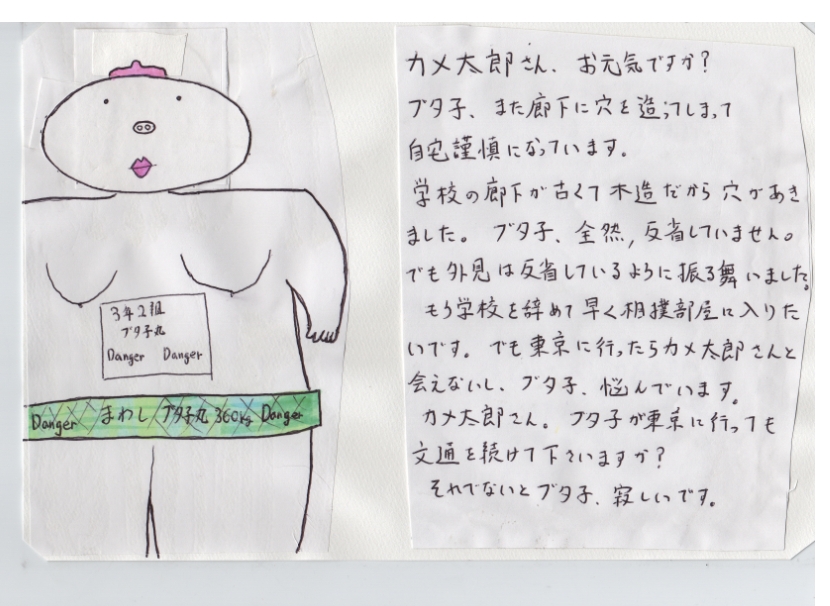 3年2組
ブタ子丸
Danger Danger
Danger まわし ブタ子丸 360kg Danger
カメ太郎さん、お元気ですか?
ブタ子、また廊下に穴を造ってしまって
自宅謹慎になっています。
学校の廊下が古くて木造だから穴があき
ました。ブタ子、全然,反省していません。
でも外見は反省しているように振る舞いました。
もう学校を辞めて早く相撲部屋に入りた
いです。でも東京に行ったらカメ太郎さんと
会えないし、ブタ子、悩んでいます。
カメ太郎さん。ブタ子が東京に行っても
文通を続けて下さいますか?
それでないとブタ子、寂しいです。